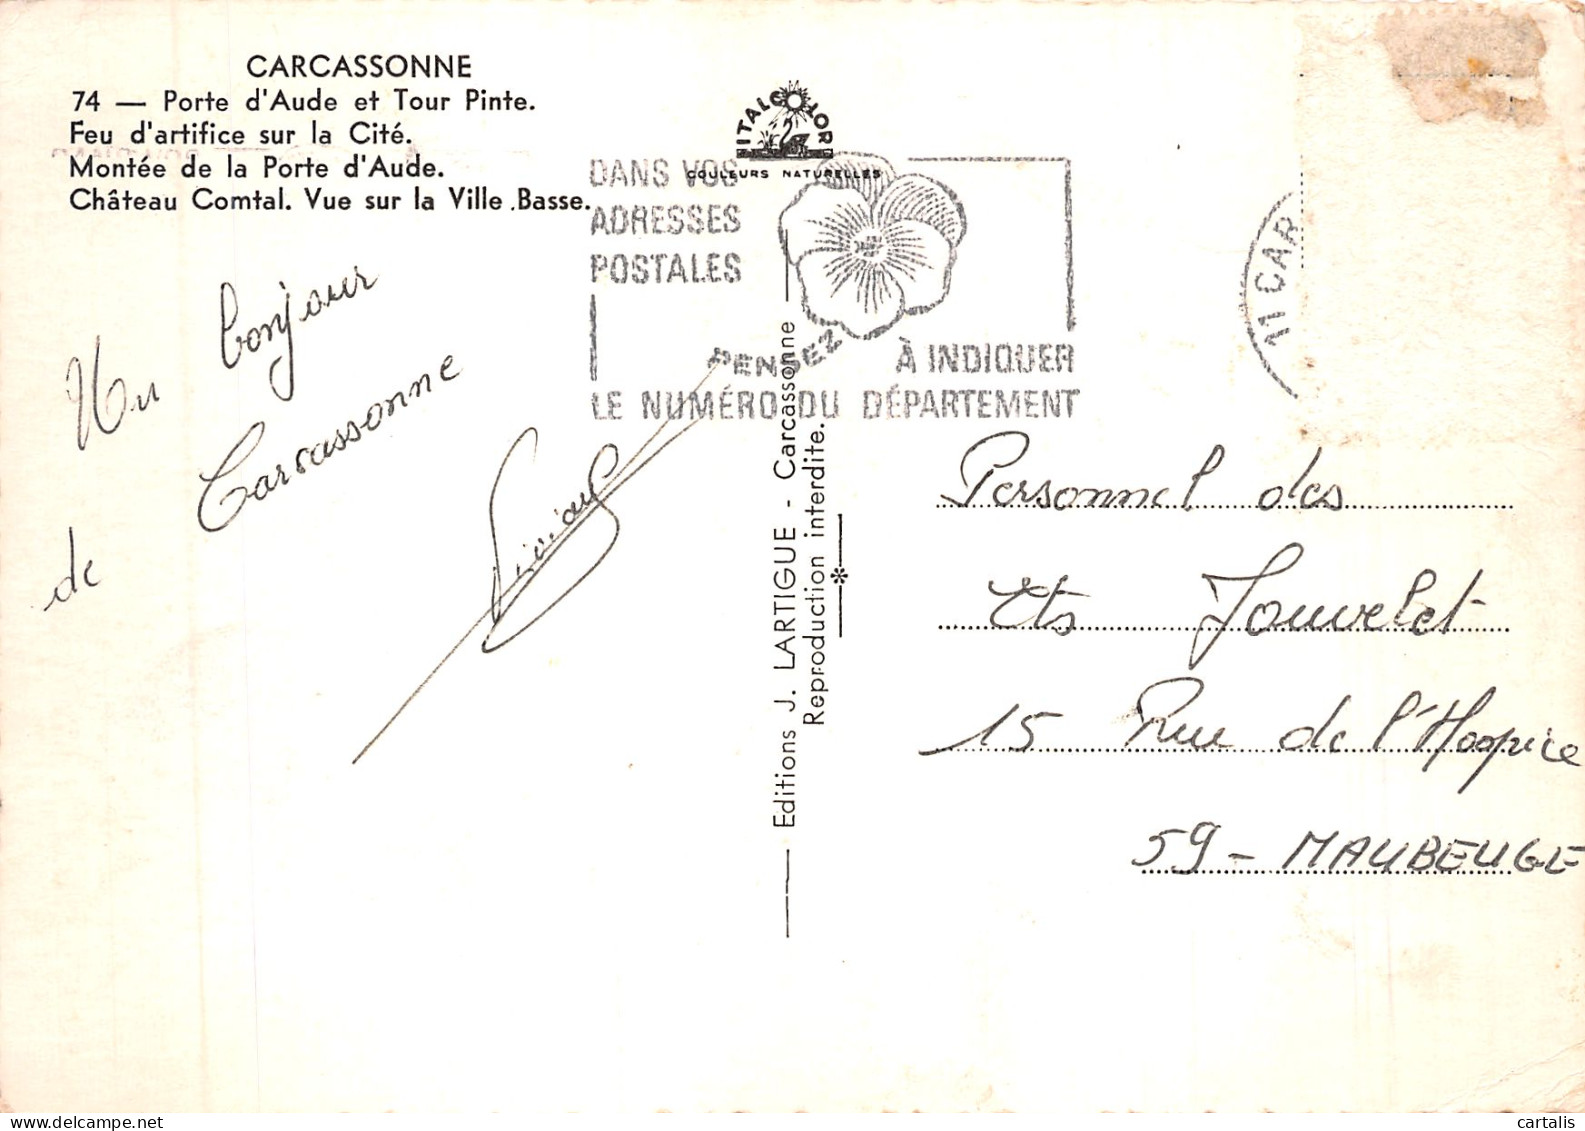 CARCASSONNE
74 — Porte d'Aude et Tour Pinte.
Feu d'artifice sur la Cité.
Montée de la Porte d'Aude.
Château Comtal. Vue sur la Ville Basse.
ITALCOLOR
COULEURS NATURELLES
DANS VOS
ADRESSES
POSTALES
PENSEZ À INDIQUER
LE NUMÉRO DU DÉPARTEMENT
11 CAR
Un bonjour
de Carcassonne
Editions J. LARTIGUE - Carcassonne
Reproduction interdite.
Personnel des
Ets Jouvelet
15 Rue de l'Hospice
59 - MAUBEUGE
delcampe.net
cartalis